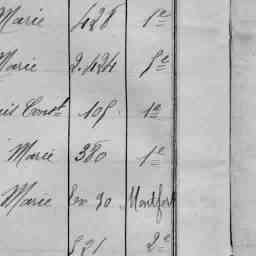 Marie 428 1e
Marie 2.424 5e
Const. 105 1e
Marie 380 1e
Marie Ex 30 Montfort
521 2e